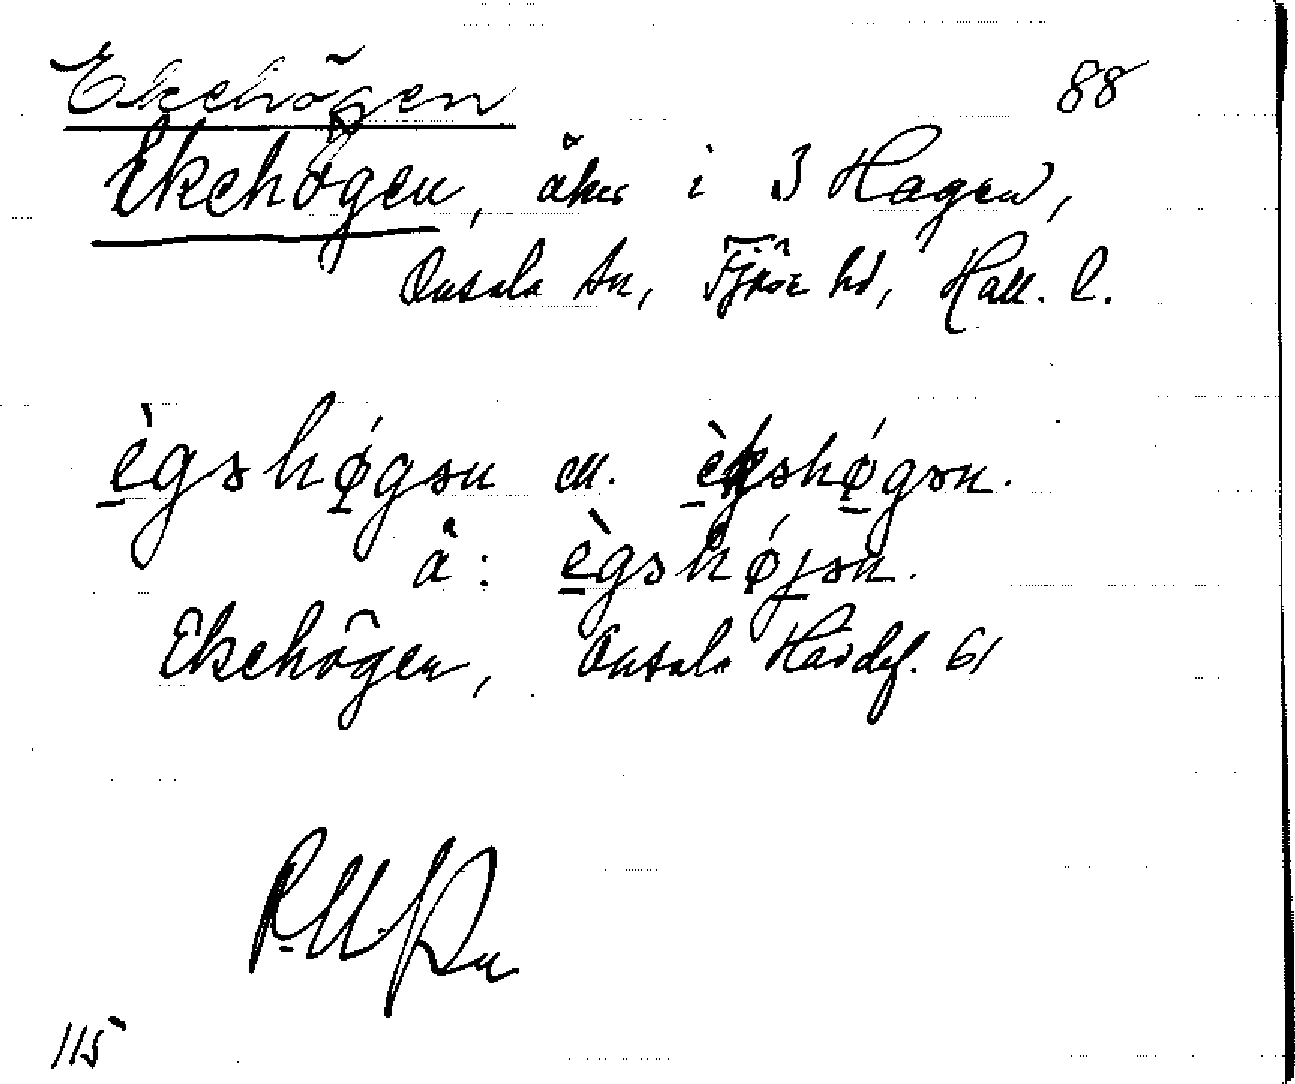 Ekehögen 88
Ekehögen, åker i 3 Hagen,
Onsala sn, Fjäre hd, Hall. l.
ègəhǿgən el. èkəhǿgən.
ä: ègəhǿjən.
Ekehögen, Onsala Hdaf. 61
115